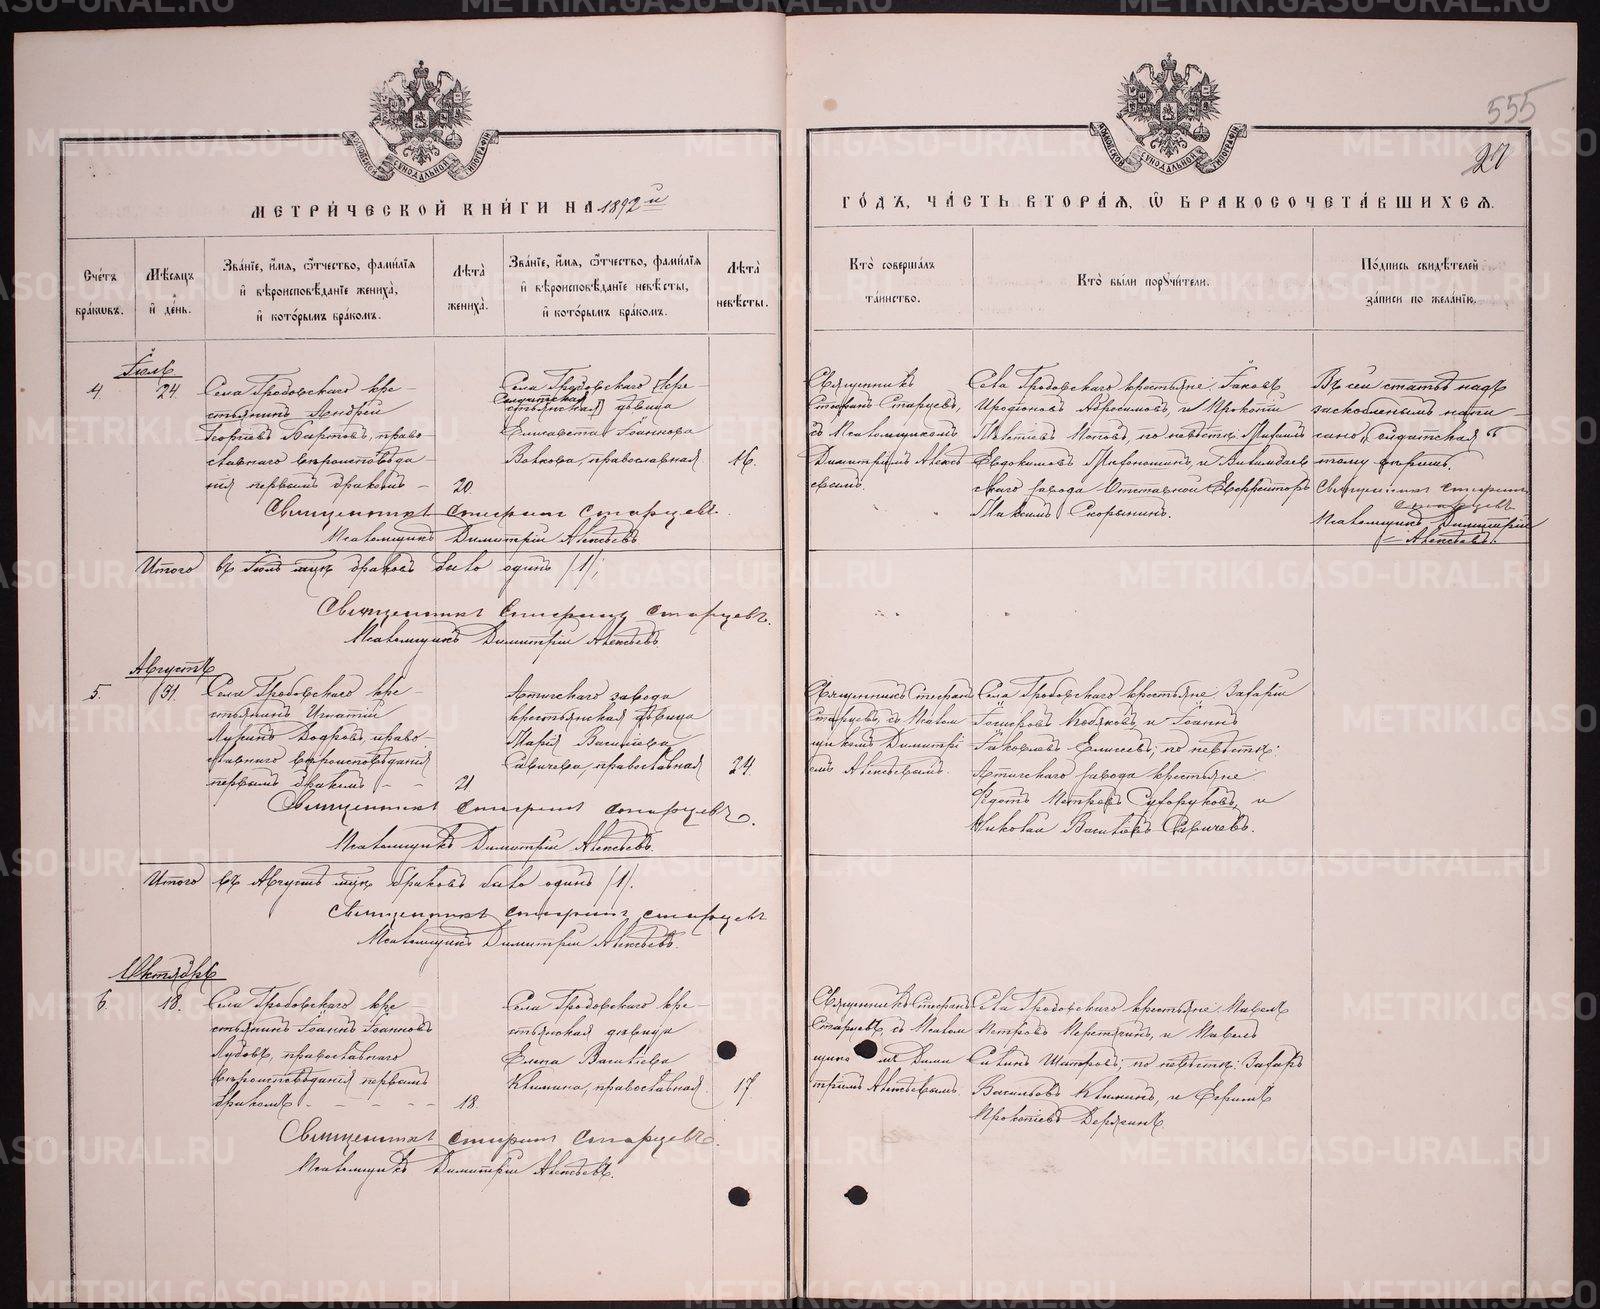 555
27
МЕТРИЧЕСКОЙ КНИГИ НА 1892й
ГОДЪ, ЧАСТЬ ВТОРАЯ, Ѡ БРАКОСОЧЕТАВШИХСЯ.
Счетъ браковъ.
Мѣсяцъ и день.
Званіе, имя, отчество, фамилія и вѣроисповѣданіе жениха, и которымъ бракомъ.
Лѣта жениха.
Званіе, имя, отчество, фамилія и вѣроисповѣданіе невѣсты, и которымъ бракомъ.
Лѣта невѣсты.
Кто совершалъ таинство.
Кто были поручители.
Подпись свидѣтелей записи по желанію.
Іюль
4. 24.
Села Гробовскаго кре-
стьянинъ Андрей
Георгіевъ, право-
славнаго вѣроисповѣда-
нія первымъ бракомъ - 20.
Села Гробовскаго (кре-
Солдатская
стьянская) дѣвица
Елисавета Іоаннова
Волкова, православная 16.
Священникъ
Стефанъ Старцевъ,
съ Псаломщикомъ
Димитріемъ Алексѣ-
евымъ.
Села Гробовскаго крестьяне: Іаковъ
Иродіоновъ Абросимовъ, и Прокопій
Поповъ, по невѣстѣ: Михаилъ
Евдокимовъ и
завода Отставной Ефрейторъ
Максимъ Скорынинъ.
Въ сей статьѣ надъ
заскобленнымъ напи-
сано „солдатская“
Священникъ Стефанъ
Старцевъ
Псаломщикъ Димитрій
Алексѣевъ.
Священникъ Стефанъ Старцевъ.
Псаломщикъ Димитрій Алексѣевъ
Итого въ Іюлѣ мцѣ браковъ было одинъ /1/,
Священникъ Стефанъ Старцевъ.
Псаломщикъ Димитрій Алексѣевъ
Августъ
5. 31.
Села Гробовскаго кре-
стьянинъ Игнатій
Бобровъ, право-
славнаго вѣроисповѣданія
первымъ бракомъ - - 21
Артинскаго завода
крестьянская дѣвица
Марія Васильева
Савичева, православная 24.
Священникъ Стефанъ
Старцевъ, съ Псалом-
щикомъ Димитрі-
емъ Алексѣевымъ.
Села Гробовскаго крестьяне: Захарій
Кобяковъ, и Іоаннъ
Іаковлевъ Елисеевъ; по невѣстѣ:
Артинскаго завода крестьяне
Федотъ Петровъ Сухоруковъ, и
Николай Васильевъ Савичевъ.
Священникъ Стефанъ Старцевъ.
Псаломщикъ Димитрій Алексѣевъ.
Итого въ Августѣ мцѣ браковъ было одинъ /1/.
Священникъ Стефанъ Старцевъ
Псаломщикъ Димитрій Алексѣевъ.
Октябрь
6 18.
Села Гробовскаго кре-
стьянинъ Іоаннъ Іоанновъ
православнаго
вѣроисповѣданія первымъ
бракомъ - - - - 18.
Села Гробовскаго кре-
стьянская дѣвица
Елена Васильева
Климина, православная 17.
Священникъ Стефанъ
Старцевъ, съ Псалом-
щикомъ Дими-
тріемъ Алексѣевымъ.
Села Гробовскаго крестьяне: Павелъ
Петровъ и Павелъ
по невѣстѣ: Захаръ
Васильевъ Климинъ, и
Прокопіевъ Дерягинъ.
Священникъ Стефанъ Старцевъ.
Псаломщикъ Димитрій Алексѣевъ.
METRIKI.GASO-URAL.RU